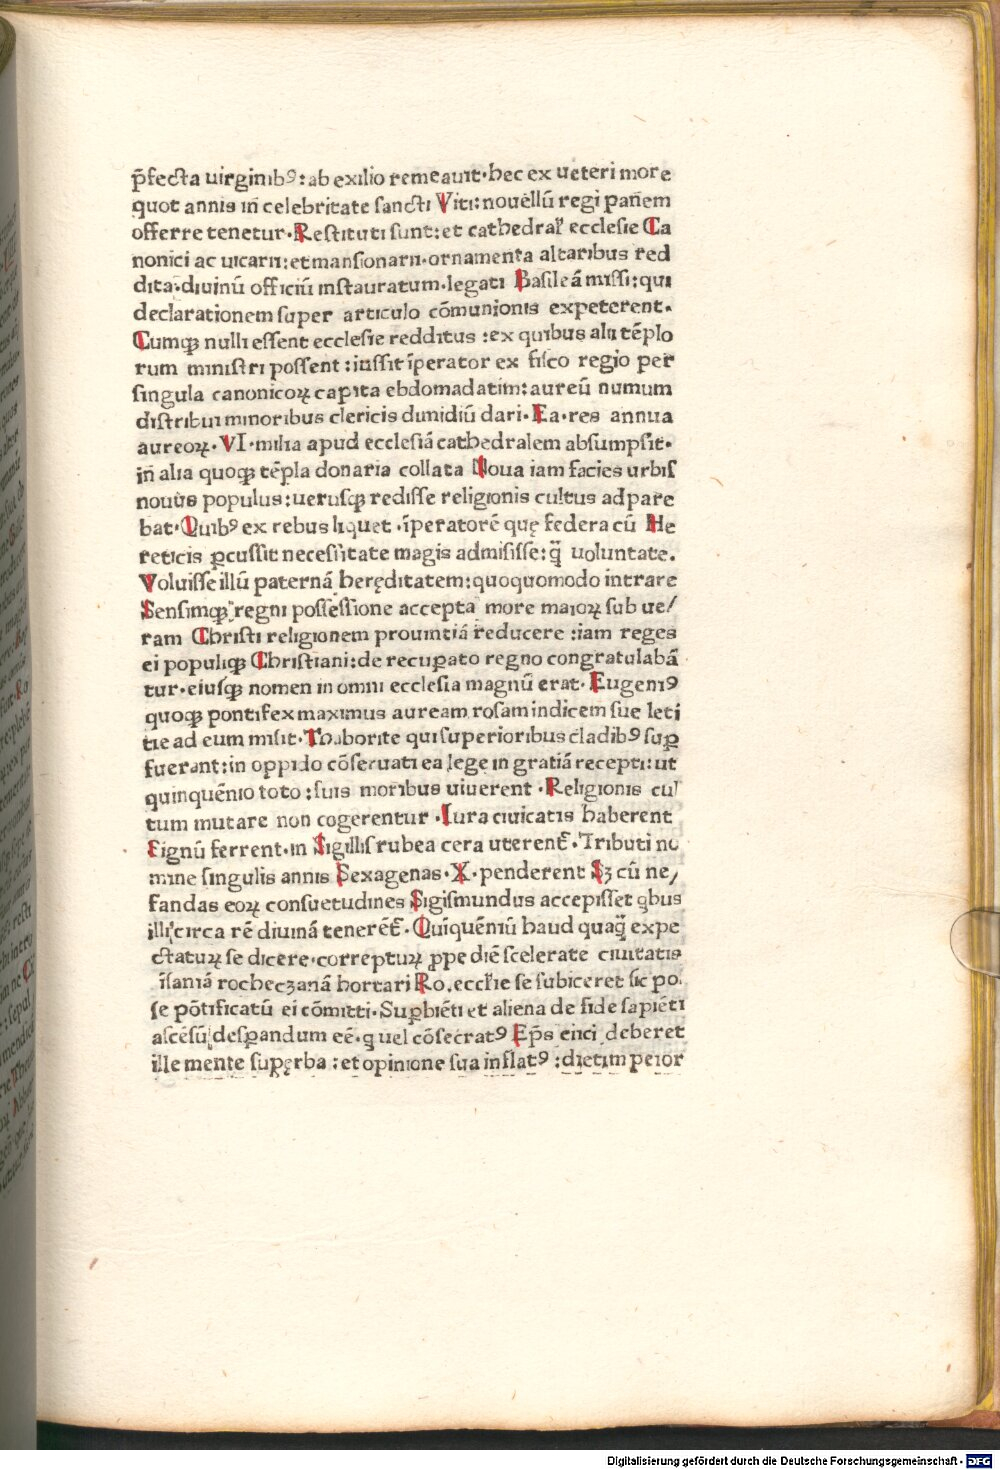 p̄fecta uirginibꝰ: ab exilio remeauit· hec ex ueteri more
quot annis in̄ celebritate sancti Viti: nouellū regi pan̄em
offerre tenetur· Restituti sunt: et cathedral̄ ecclesie Ca
nonici ac uicarii: et mansionarii· ornamenta altaribus red
dita: diuinū officiū instauratum· legati Basileā missi: qui
declarationem super articulo cōmunionis expeterent·
Cumqꝫ nulli essent ecclesie redditus : ex quibus alii tēplo
rum ministri possent : iussit īperator ex fisco regio per
singula canonicoꝝ capita ebdomadatim: aureū numum
distribui minoribus clericis dimidiū dari· Ea· res annua
aureoꝝ· VI· milia apud ecclesiā cathedralem absumpsit·
in̄ alia quoqꝫ tēpla donaria collata Noua iam facies urbis
nouus populus: uerusqꝫ redisse religionis cultus ad pare
bat· Quibꝰ ex rebus liquet · īperatorē quę federa cū He
reticis ꝑcussit necessitate magis admisisse: q̄ uoluntate.
Voluisse illū paternā heręditatem: quoquomodo intrare
Sensimqꝫ regni possessione accepta more maioꝝ sub ue/
ram Christi religionem prouintiā reducere : iam reges
ei populiqꝫ Christiani: de recuꝑato regno congratulabā
tur· eiusqꝫ nomen in omni ecclesia magnū erat· Eugeniꝰ
quoqꝫ pontifex maximus auream rosam indicem sue leti
tie ad eum misit· Thaborite qui superioribus cladibꝰ suꝑ
fuerant: in oppido cōseruati ea lege in gratiā recepti: ut
quinquēnio toto : suis moribus uiuerent · Religionis cul
tum mutare non cogerentur · Iura ciuicatis haberent
Signū ferrent· in Sigillis rubea cera uterent̄ · Tributi no
mine singulis annis Sexagenas· X· penderent Sꝫ cū ne/
fandas eoꝝ consuetudines Sigismundus accepisset qbus
illi circa rē diuinā tenerēt̄ · Quiquēniū haud quaq̄ expe
ctatuꝝ se dicere· correptuꝝ ꝓpe diē scelerate ciuitatis
īsaniā rocheczanā hortari Ro. eccl̄ie se subiceret sic po
se pōtificatū ei cōmitti· Suꝑbiēti et aliena de fide sapiēti
ascēsū desꝑandum eē· q uel cōsecratꝰ Ep̄s enci deberet
ille mente supęrba : et opinione sua inflatꝰ : dietim peior
Digitalisierung gefördert durch die Deutsche Forschungsgemeinschaft - DFG